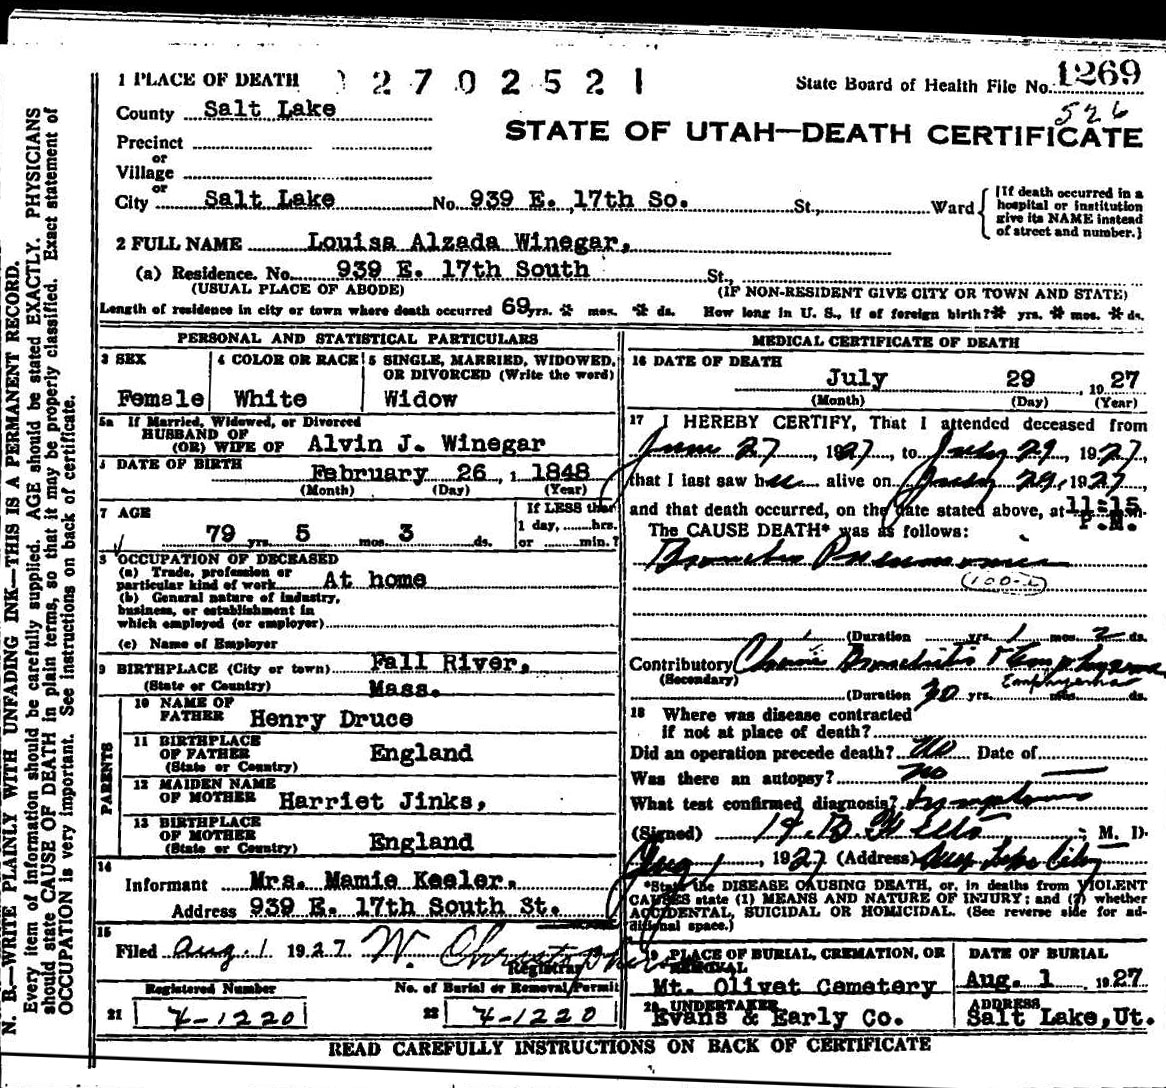 1 PLACE OF DEATH 2702521 State Board of Health File No. 1269
526
County Salt Lake
STATE OF UTAH—DEATH CERTIFICATE
Precinct
or
Village
or
City Salt Lake No. 939 E. 17th So. St., Ward
[If death occurred in a hospital or institution give its NAME instead of street and number.]
2 FULL NAME Louisa Alzada Winegar,
(a) Residence. No. 939 E. 17th South St.,
(USUAL PLACE OF ABODE) (IF NON-RESIDENT GIVE CITY OR TOWN AND STATE)
Length of residence in city or town where death occurred 69 yrs. * mos. * ds. How long in U. S., if of foreign birth? * yrs. * mos. * ds.
PERSONAL AND STATISTICAL PARTICULARS
3 SEX
Female
4 COLOR OR RACE
White
5 SINGLE, MARRIED, WIDOWED,
OR DIVORCED (Write the word)
Widow
5a If Married, Widowed, or Divorced
HUSBAND OF
(OR) WIFE OF Alvin J. Winegar
DATE OF BIRTH
February 26, 1848
(Month) (Day) (Year)
7 AGE
79 yrs. 5 mos. 3 ds.
If LESS than
1 day, hrs.
or min.?
8 OCCUPATION OF DECEASED
(a) Trade, profession or
particular kind of work At home
(b) General nature of industry,
business, or establishment in
which employed (or employer)
(c) Name of Employer
9 BIRTHPLACE (City or town) Fall River,
(State or Country) Mass.
PARENTS
10 NAME OF
FATHER Henry Druce
11 BIRTHPLACE
OF FATHER England
(State or Country)
12 MAIDEN NAME
OF MOTHER Harriet Jinks,
13 BIRTHPLACE
OF MOTHER England
(State or Country)
14
Informant Mrs. Mamie Keeler.
Address 939 E. 17th South St.
15
Filed Aug. 1 1927 W. Christopherson
Registrar
Registered Number
21 4-1220
No. of Burial or Removal Permit
22 4-1220
MEDICAL CERTIFICATE OF DEATH
16 DATE OF DEATH
July 29 1927
(Month) (Day) (Year)
17 I HEREBY CERTIFY, That I attended deceased from
June 27, 1927, to July 29, 1927,
that I last saw her alive on July 29, 1927
and that death occurred, on the date stated above, at 11:15 m.
P.M.
The CAUSE DEATH* was as follows:
Broncho Pneumonia
(100-1)
(Duration yrs. 1 mos. 2 ds.
Contributory Chronic Bronchitis & Emphysema
(Secondary) Emphysema
(Duration 20 yrs. mos. ds.
18 Where was disease contracted
if not at place of death?
Did an operation precede death? No Date of
Was there an autopsy? no
What test confirmed diagnosis? Symptoms
(Signed) M. D.
Aug 1, 1927 (Address) Salt Lake City
*State the DISEASE CAUSING DEATH, or, in deaths from VIOLENT
CAUSES state (1) MEANS AND NATURE OF INJURY; and (2) whether
ACCIDENTAL, SUICIDAL OR HOMICIDAL. (See reverse side for additional space.)
19 PLACE OF BURIAL, CREMATION, OR
REMOVAL
Mt. Olivet Cemetery
DATE OF BURIAL
Aug. 1 1927
20 UNDERTAKER
Evans & Early Co.
ADDRESS
Salt Lake, Ut.
READ CAREFULLY INSTRUCTIONS ON BACK OF CERTIFICATE
N. B.—WRITE PLAINLY WITH UNFADING INK—THIS IS A PERMANENT RECORD.
Every item of information should be carefully supplied. AGE should be stated EXACTLY. PHYSICIANS
should state CAUSE OF DEATH in plain terms, so that it may be properly classified. Exact statement of
OCCUPATION is very important. See instructions on back of certificate.